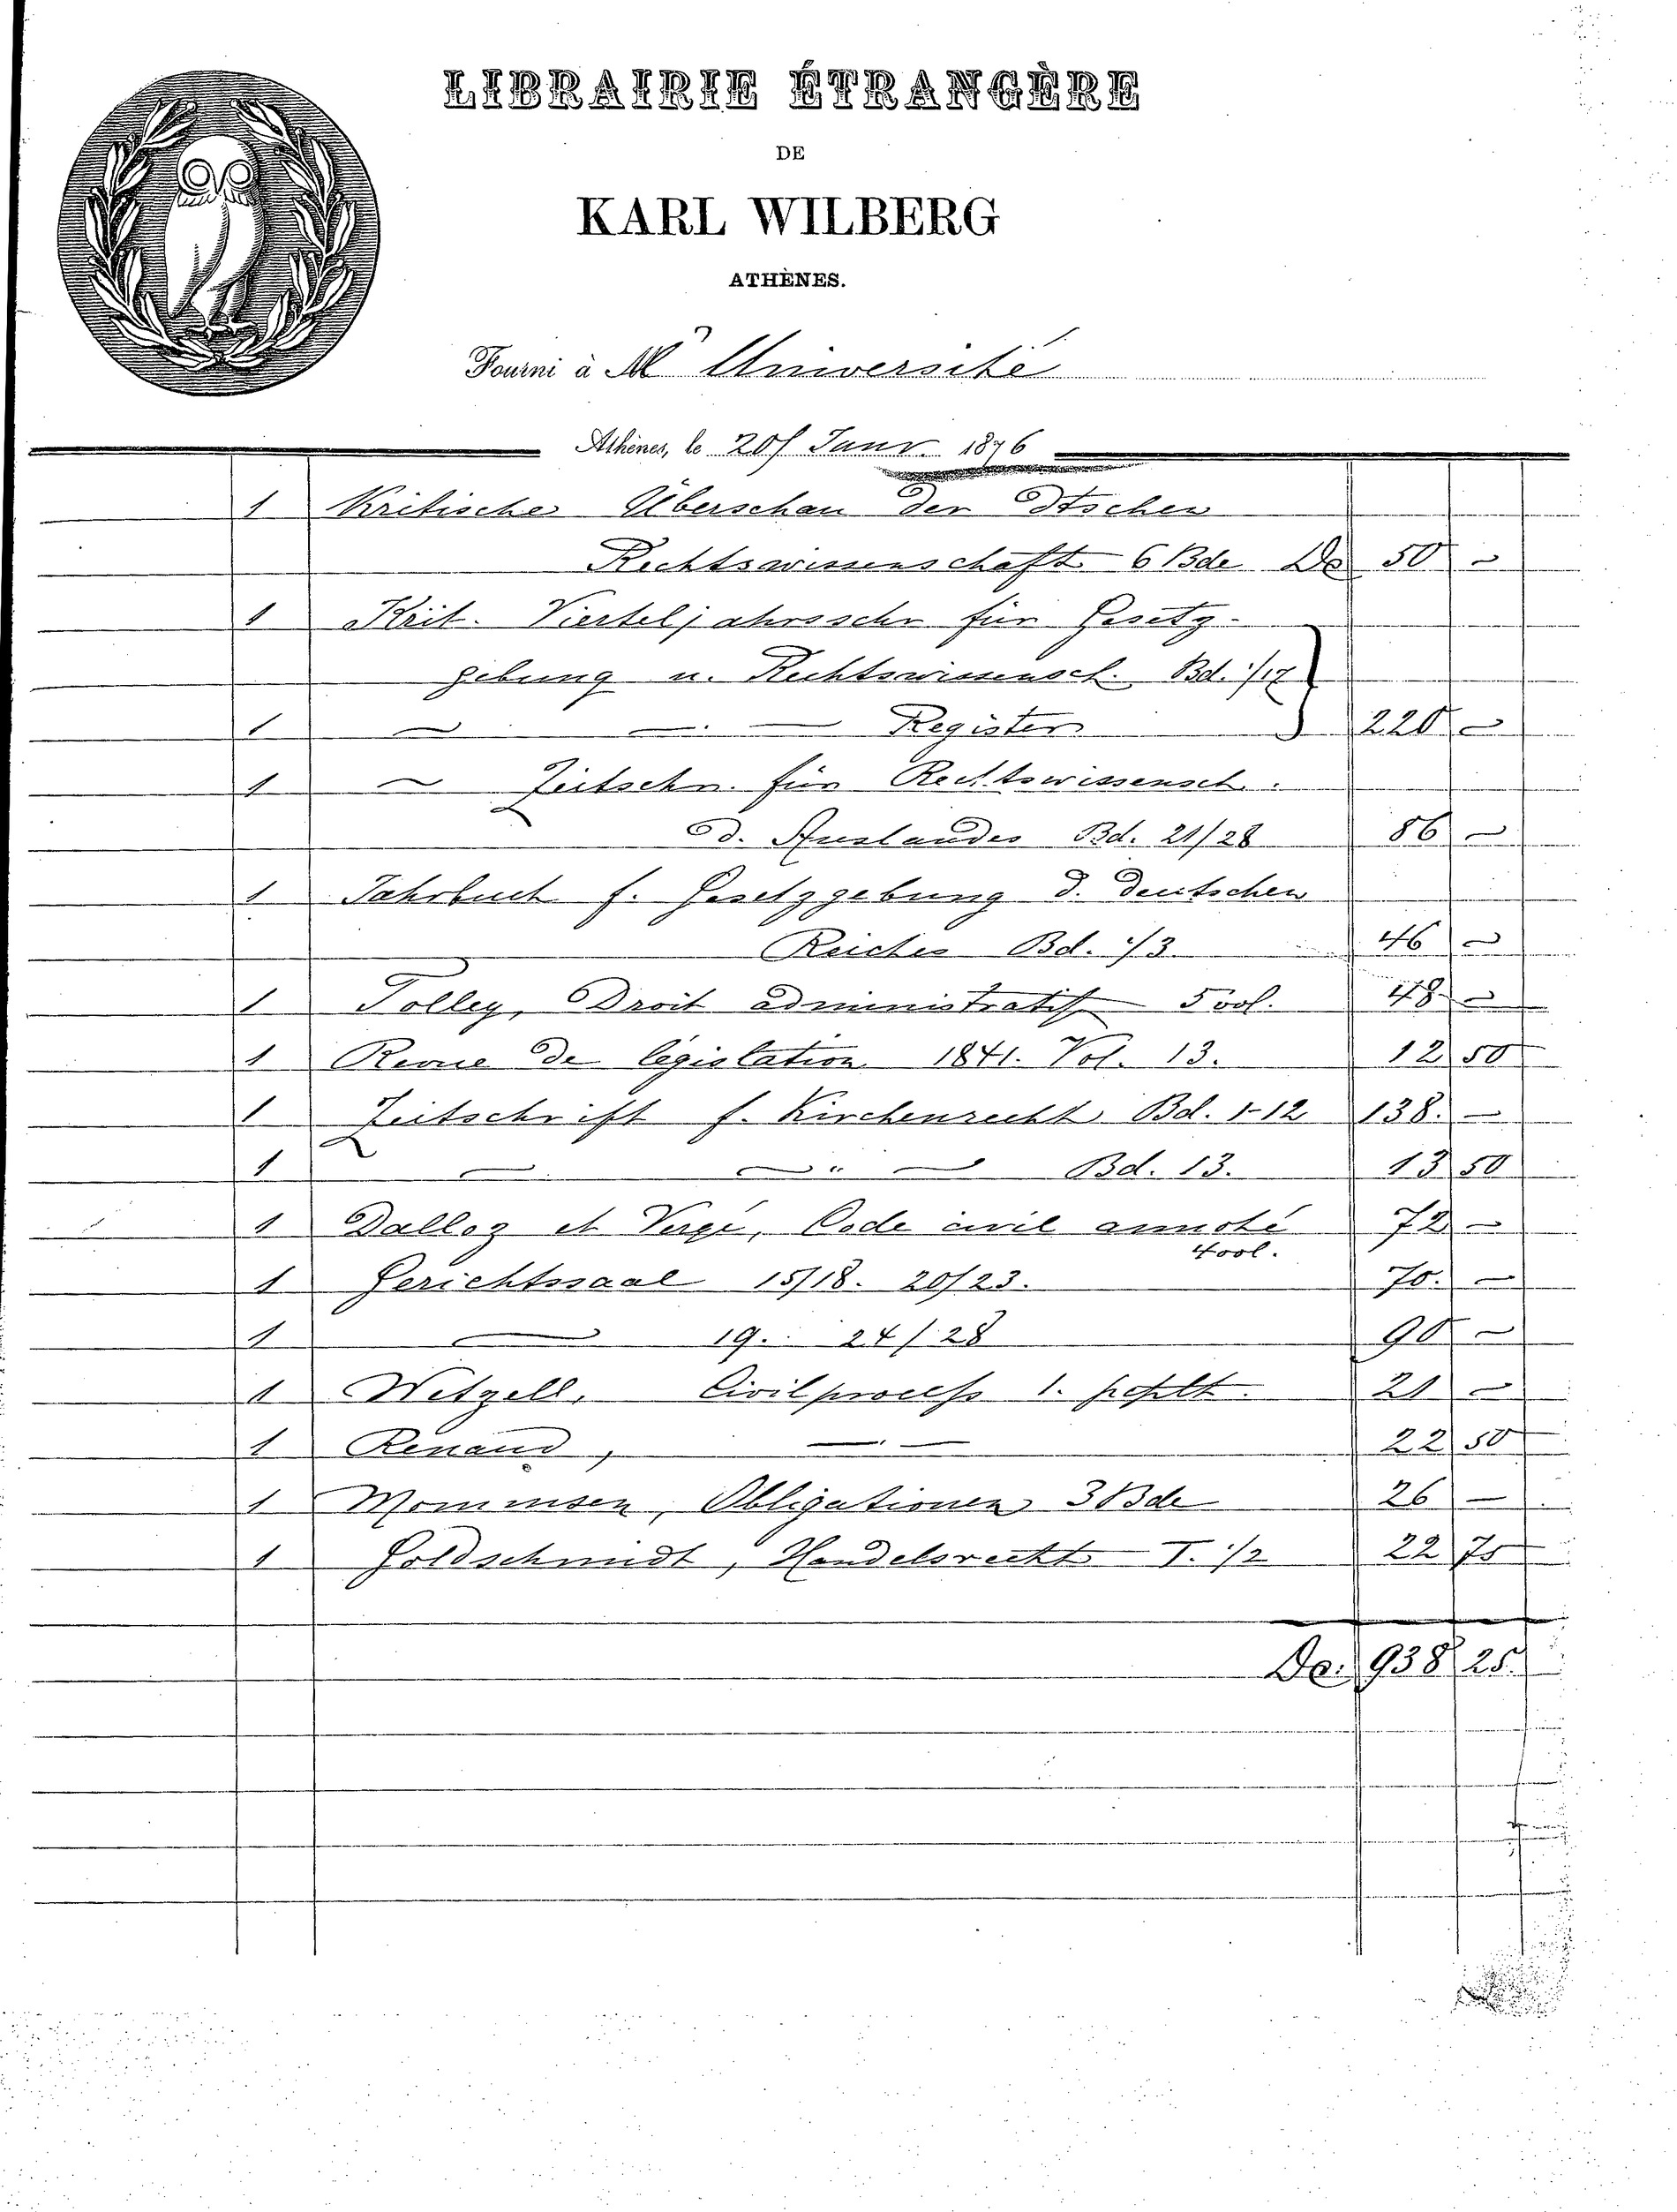 LIBRAIRIE ÉTRANGÈRE
DE
KARL WILBERG
ATHÈNES.
Fourni à M Université
Athènes, le 20/ Janr. 1876
1 Kritische Überschau der dtschen
Rechtswissenschaft 6 Bde Dr 50 —
1 Krit. Vierteljahrsschr für Gesetz-
gebung u. Rechtswissensch. Bd. 1/17
1 — — — Register 220 —
1 — Zeitschr. für Rechtswissensch.
d. Auslandes Bd. 21/28 86 —
1 Jahrbuch f. Gesetzgebung d. deutschen
Reiches Bd. 1/3 46 —
1 Tolley, Droit administratif 5 vol. 48 —
1 Revue de législation 1841. Vol. 13. 12 50
1 Zeitschrift f. Kirchenrecht Bd. 1-12 138. —
1 — — " — Bd. 13. 13 50
1 Dalloz et Vergé, Code civil annoté 72 —
4 vol.
1 Gerichtssaal 15/18. 20/23. 70. —
1 — 19. 24/28 90 —
1 Wetzell, Civilprocess 1. 21 —
1 Renaud, — — 22 50
1 Mommsen, Obligationen 3 Bde 26 —
1 Goldschmidt, Handelsrecht I. 1/2 22 75
Dr. 938 25.